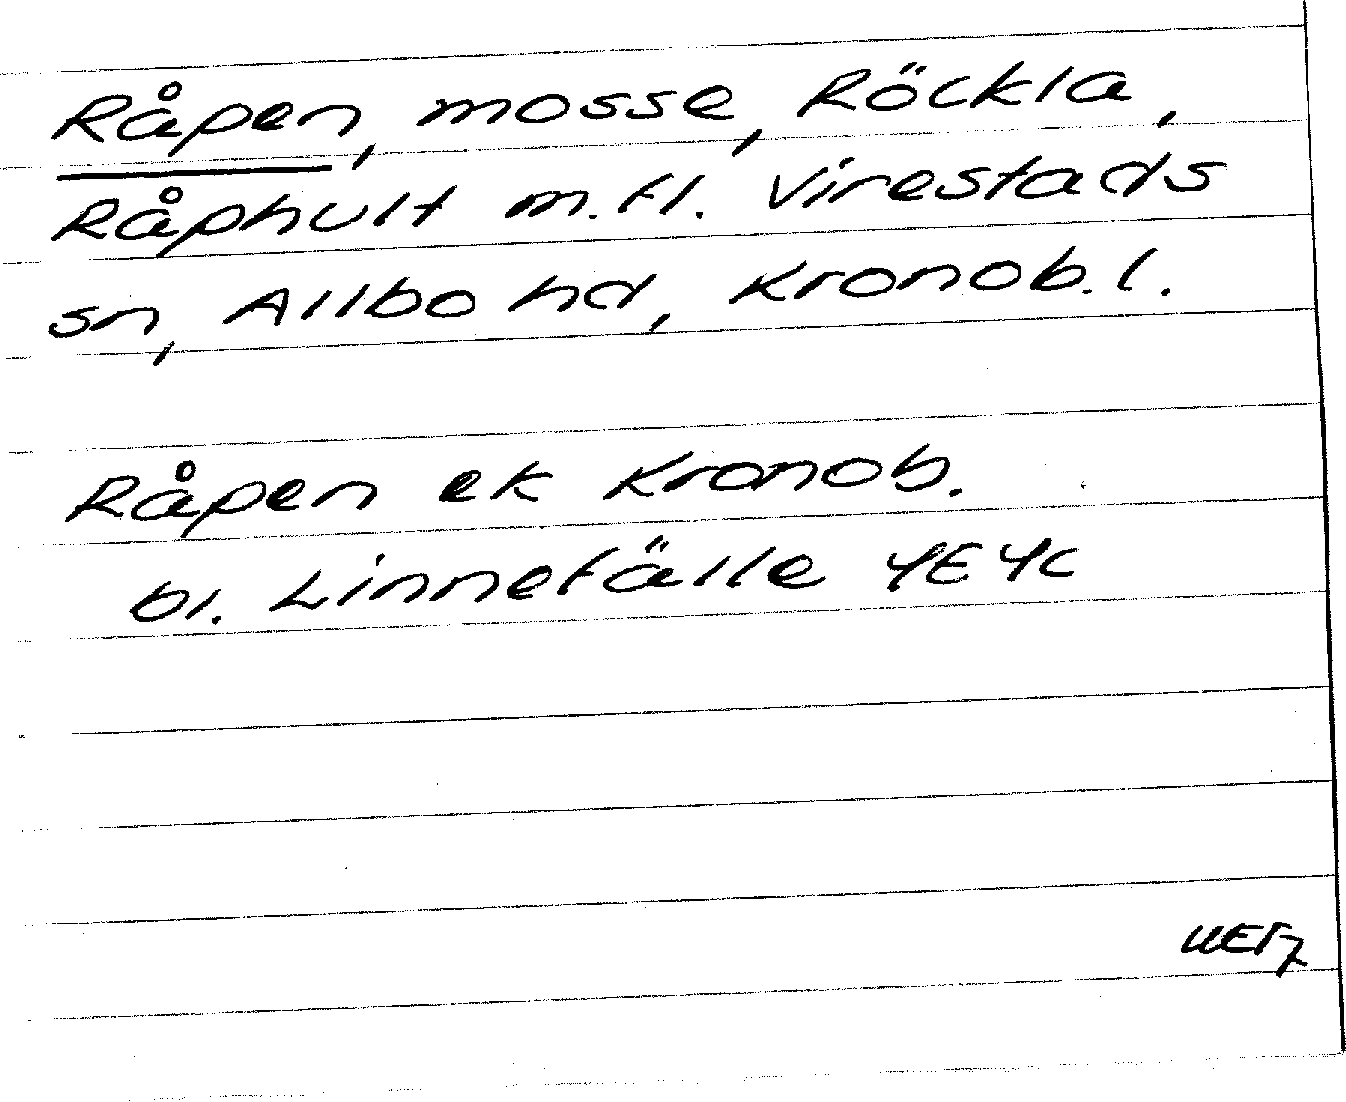 Råpen, mosse, Röckla,
Råphult m.fl. Virestads
sn, Allbo hd, Kronob. l.
Råpen ek Kronob.
bl. Linnefälle 4E 4c